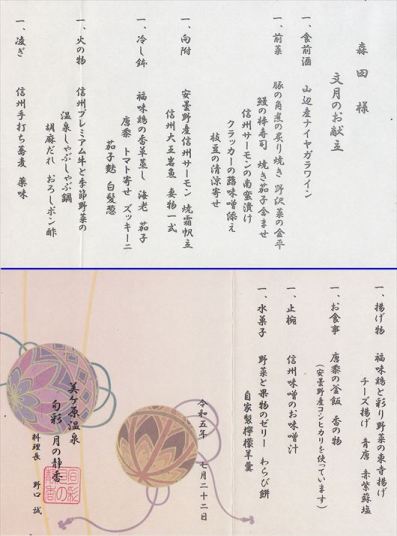 森田 様
文月のお献立
一、食前酒 山辺産ナイヤガラワイン
一、前菜 豚の角煮の炙り焼き 野沢菜の金平
鰻の棒寿司 焼き茄子含ませ
信州サーモンの南蛮漬け
クラッカーの蕗味噌添え
枝豆の清涼寄せ
一、向附 安曇野産信州サーモン 焼霜帆立
信州大王岩魚 妻物一式
一、冷し鉢 福味鶏の香草蒸し 海老 茄子
唐黍 トマト寄せ ズッキーニ
茄子麩 白髪葱
一、火の物 信州プレミアム牛と季節野菜の
温泉しゃぶしゃぶ鍋
胡麻だれ おろしポン酢
一、凌ぎ 信州手打ち蕎麦 薬味
一、揚げ物 福味鶏と彩り野菜の東寺揚げ
チーズ揚げ 青唐 赤紫蘇塩
一、お食事 唐黍の釜飯 香の物
(安曇野産コシヒカリを使っています)
一、止椀 信州味噌のお味噌汁
一、水菓子 野菜と果物のゼリー わらび餅
自家製檸檬羊羹
令和五年 七月二十二日
美ヶ原温泉
旬彩 月の静香
料理長 野口 誠